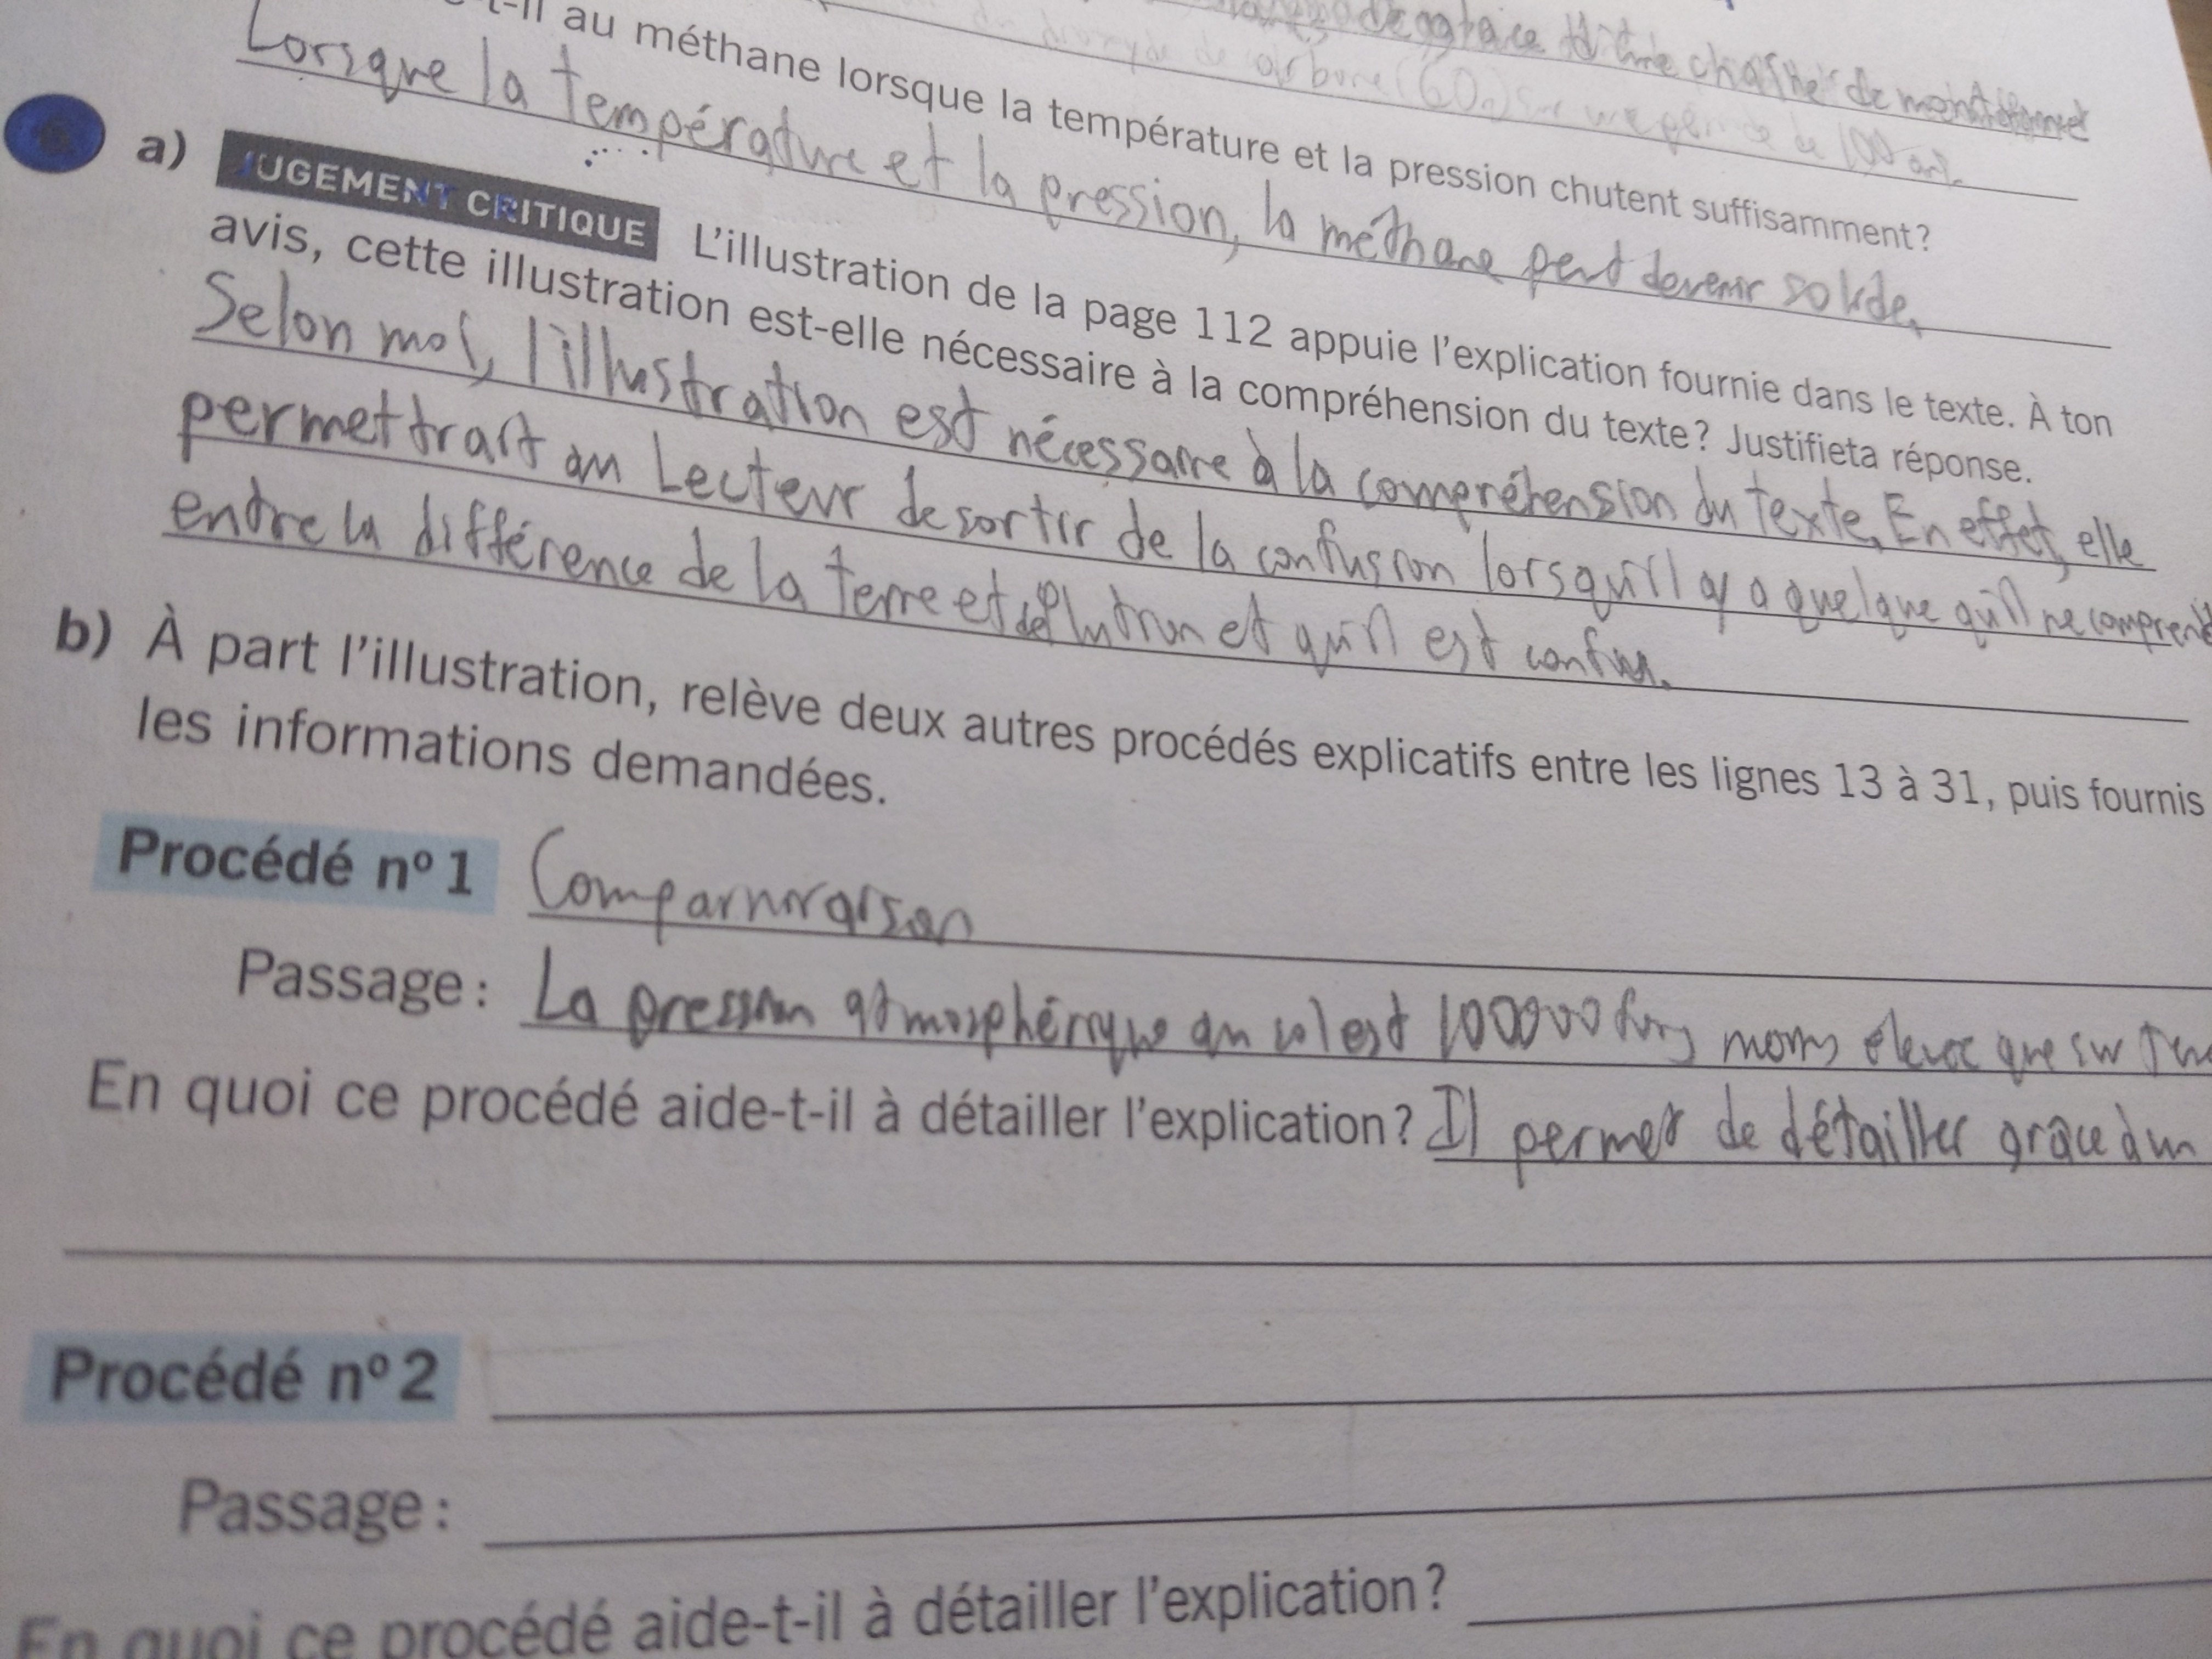 t-il au méthane lorsque la température et la pression chutent suffisamment?
Lorsque la température et la pression, la méthane peut devenir solide.
a) JUGEMENT CRITIQUE L'illustration de la page 112 appuie l'explication fournie dans le texte. À ton
avis, cette illustration est-elle nécessaire à la compréhension du texte? Justifieta réponse.
Selon moi, l'illustration est nécessaire à la compréhension du texte. En effet, elle
permettrait au Lecteur de sortir de la confusion lorsqu'il y a quelque qu'il ne comprend
entre la différence de la terre et de Pluton et qu'il est confus.
b) À part l'illustration, relève deux autres procédés explicatifs entre les lignes 13 à 31, puis fournis
les informations demandées.
Procédé nº 1
Passage: La pression atmosphérique au sol est 100000 fois moins élevée que sur
En quoi ce procédé aide-t-il à détailler l'explication? Il permet de détailler grâce à un
Procédé nº 2
Passage:
En quoi ce procédé aide-t-il à détailler l'explication?